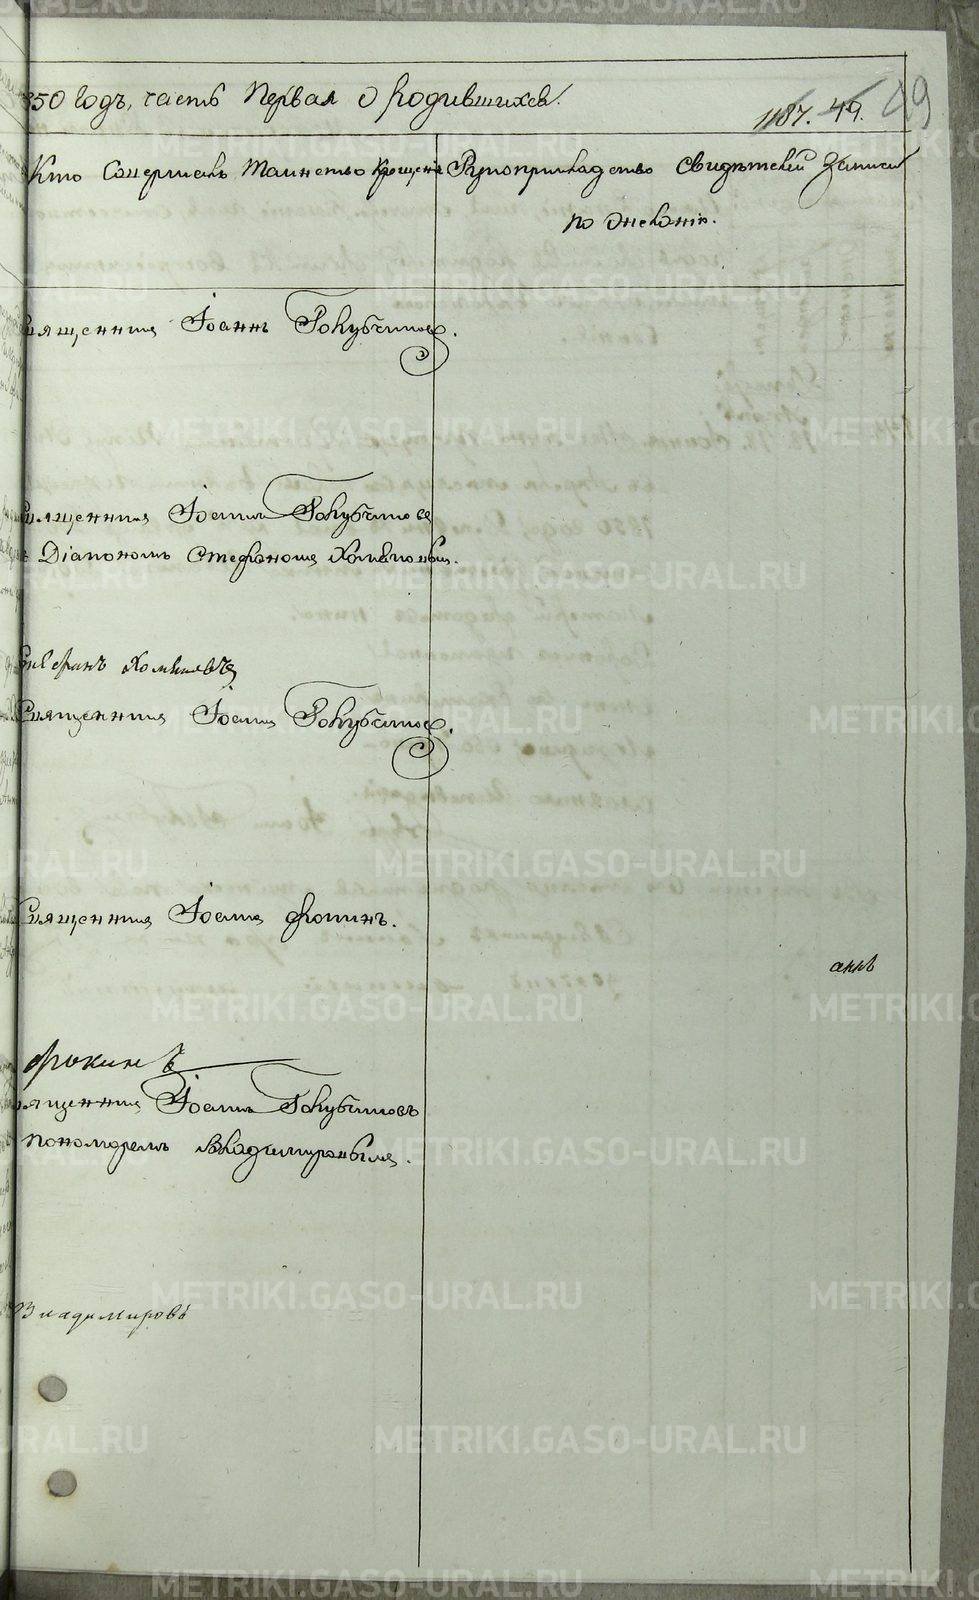 850 Годъ, часть Первая о родившихся.
1187. 49. 49
Кто Совершалъ Таинство Крещенія
Рукоприкладство Свидѣтелей Записи
по желанію.
Священникъ Іоаннъ Голубчиковъ.
Священникъ Іоаннъ Голубчиковъ
Діакономъ Стефаномъ Хомяковымъ.
Стефанъ Хомяковъ
Священникъ Іоаннъ Голубчиковъ.
Священникъ Іоаннъ Фокинъ.
Фокинъ
Священникъ Іоаннъ Голубчиковъ
Пономаремъ Владимировымъ.
Владимировъ
METRIKI.GASO-URAL.RU